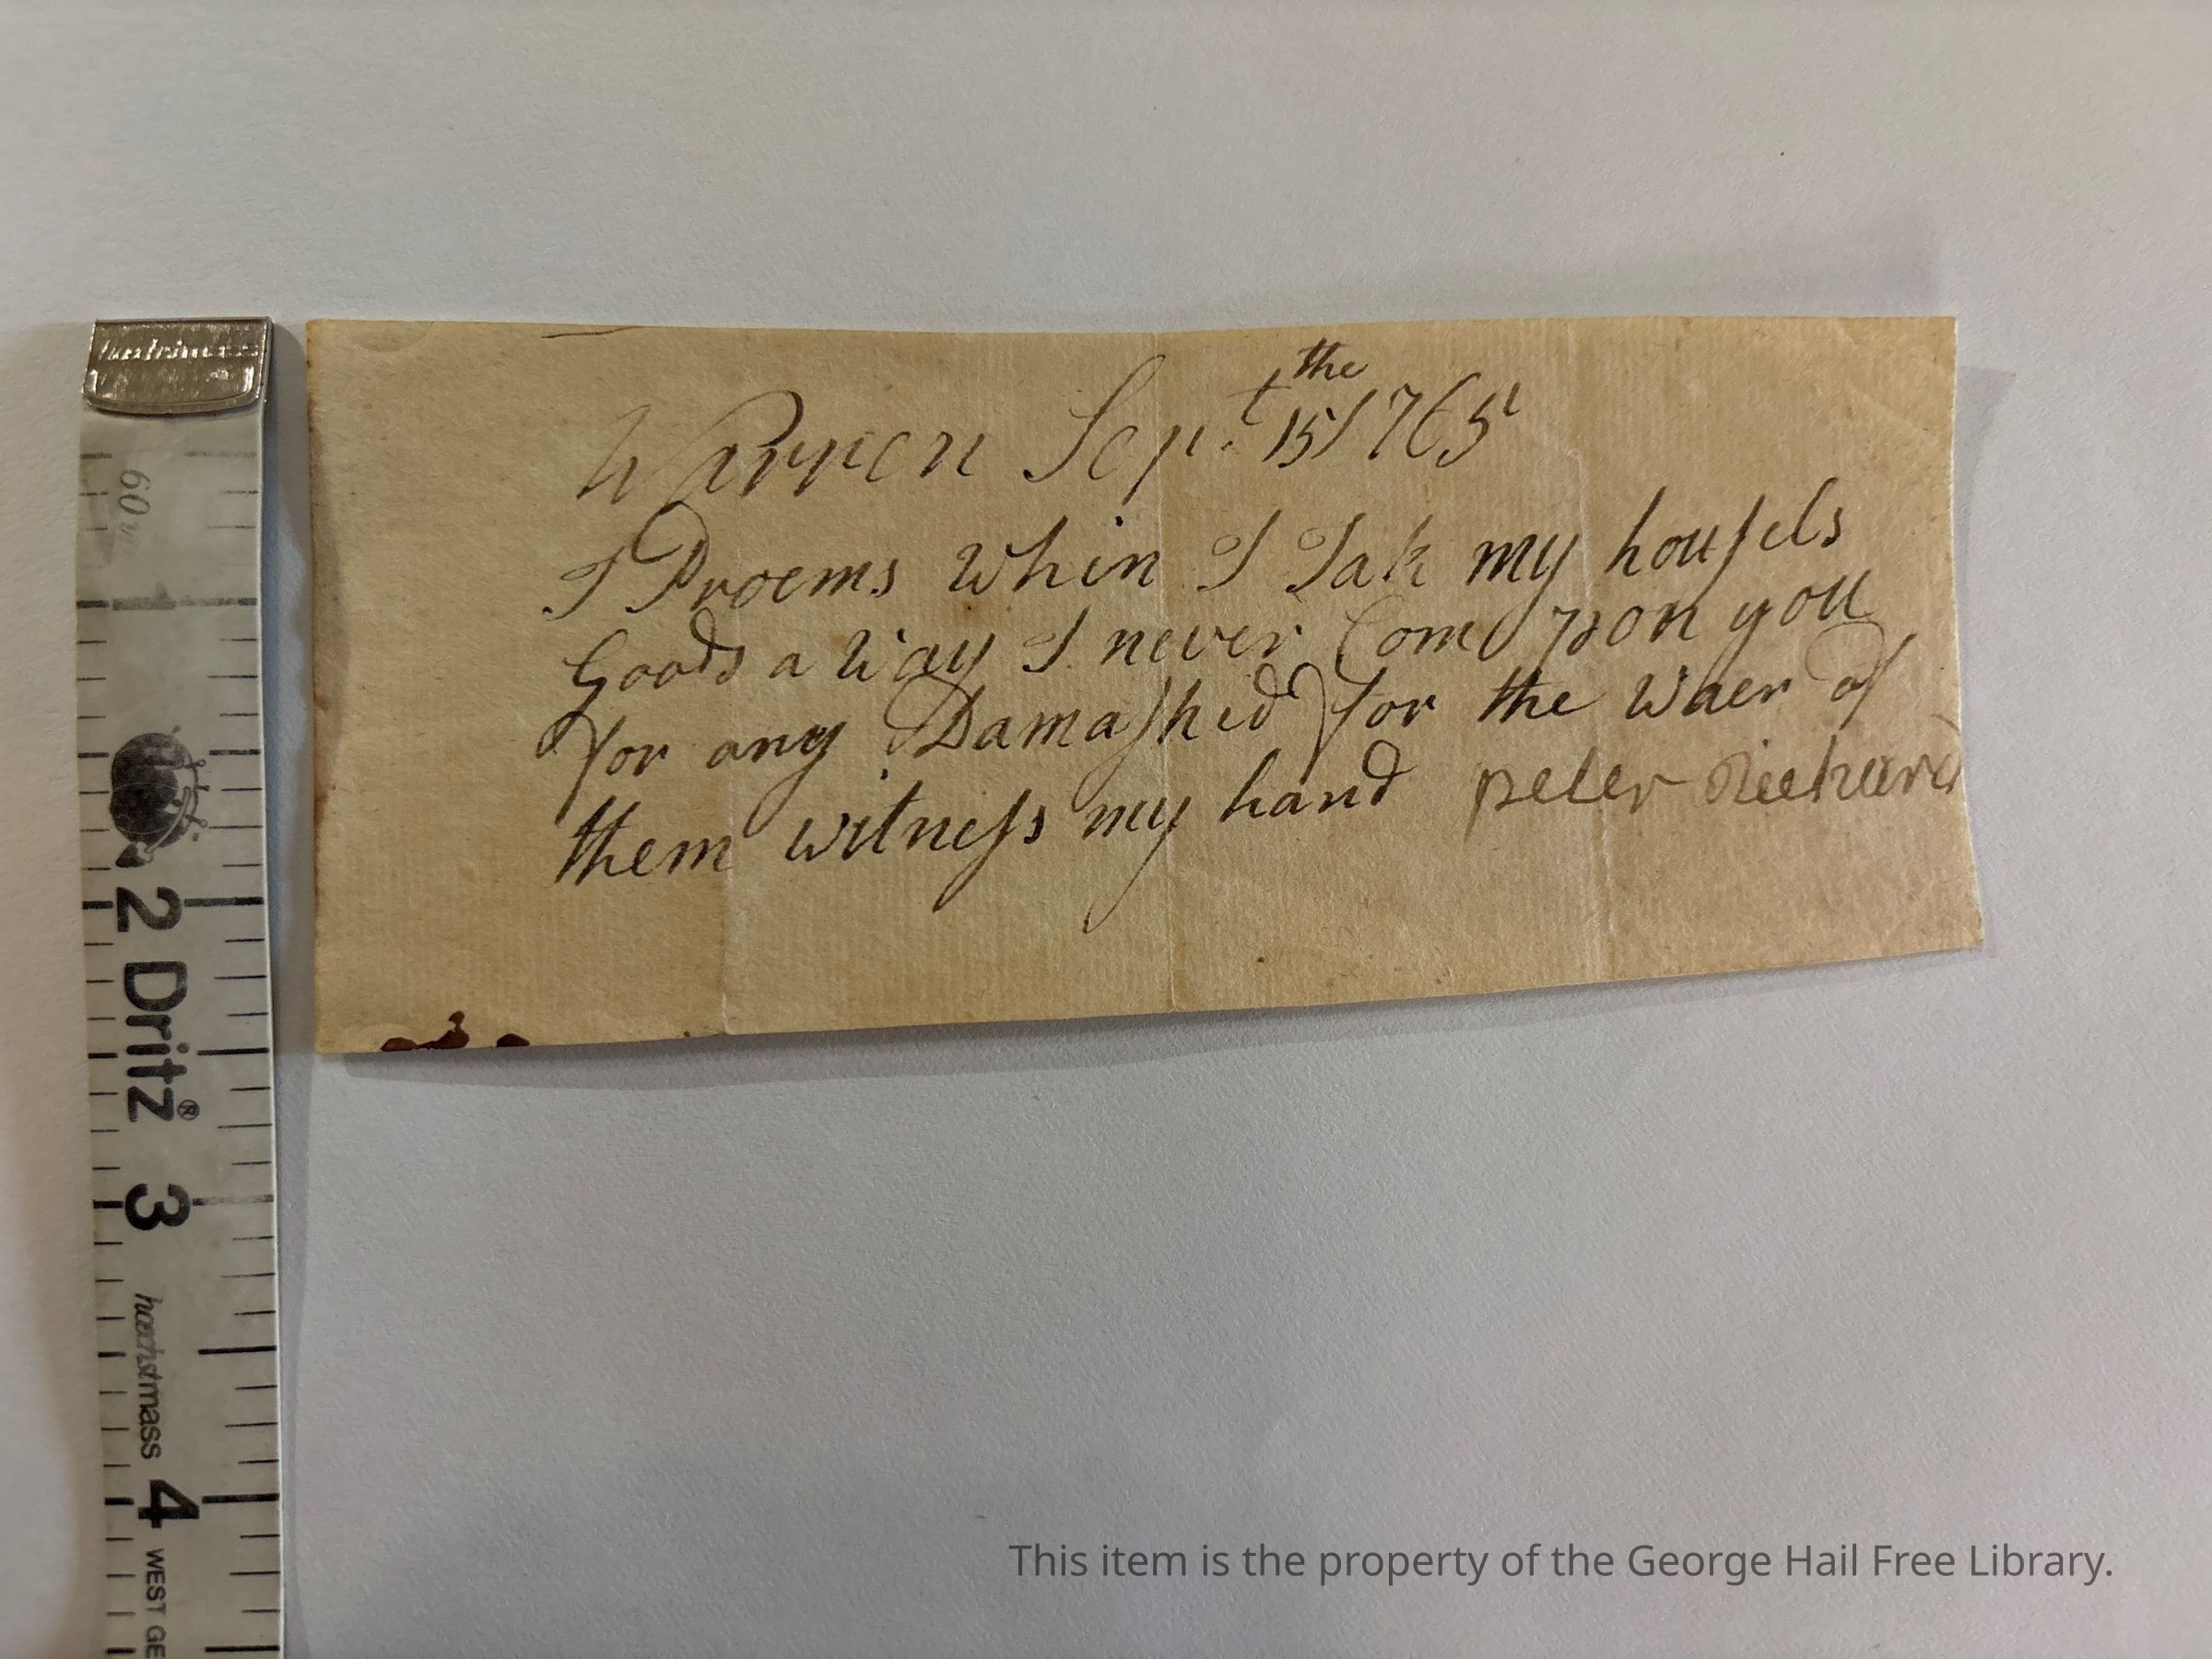 Warren Sep.t 15 the 1765
I Proems when I Tak my housels
Goods a way I never Com pon you
for any Damashed for the waer of
them witness my hand peter Richard
60
1
2 Dritz®
3
hoechstmass
4
WEST GE
This item is the property of the George Hail Free Library.